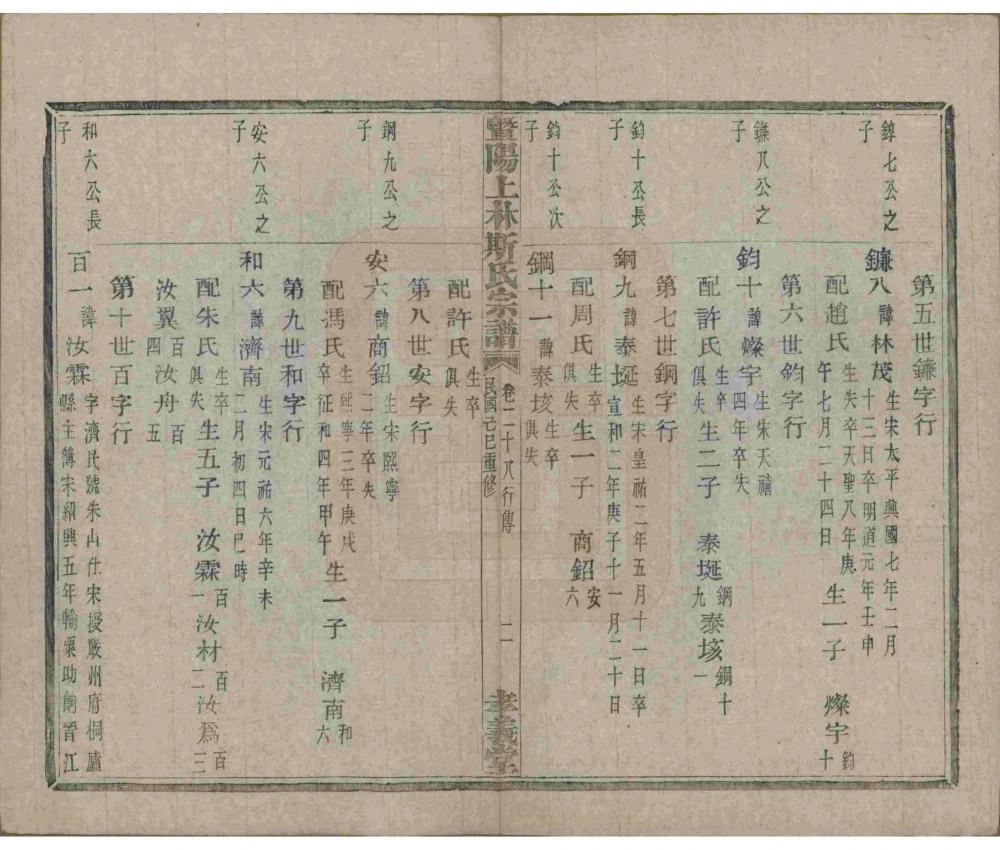 第五世鐮字行
錞七公之子
鐮八諱林茂生宋太平興國七年二月十三日卒明道元年壬申
配趙氏生失卒天聖八年庚午七月二十四日生一子　燦宇鈞十
第六世鈞字行
鐮八公之子
鈞十諱燦宇生宋天禧四年卒失
配許氏生卒俱失生二子　泰埏鋼九泰垓鋼十一
第七世鋼字行
鈞十公長子
鋼九諱泰埏生宋皇祐二年五月十一日卒宣和二年庚子十一月二十日
配周氏生卒俱失生一子　商鉊安六
鈞十公次子
鋼十一諱泰垓生卒俱失
暨陽上林斯氏宗譜
卷二十八行傳
民國己巳重修
二
孝義堂
配許氏生卒俱失
第八世安字行
鋼九公之子
安六諱商鉊生宋熙寧二年卒失
配馮氏生熙寧三年庚戌卒征和四年甲午生一子　濟南和六
第九世和字行
安六公之子
和六諱濟南生宋元祐六年辛未二月初四日巳時
配朱氏生卒俱失生五子　汝霖百一汝材百二汝爲百三
汝翼百四汝舟百五
第十世百字行
和六公長子
百一諱汝霖字濟民號朱山仕宋授嚴州府桐廬縣主簿宋紹興五年輸粟助餉晉江